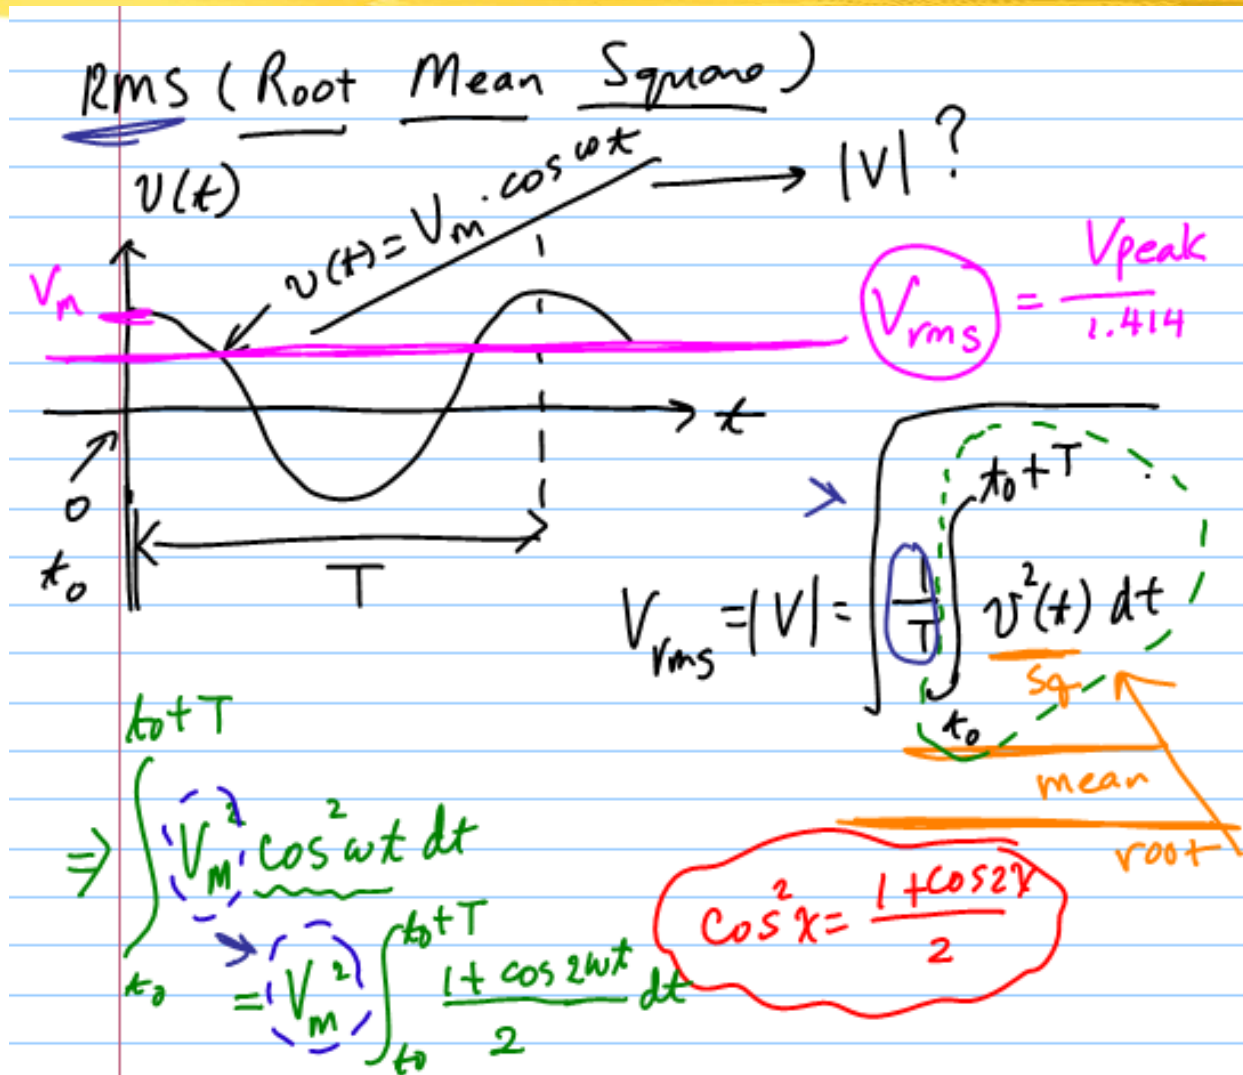 RMS (Root Mean Square)
v(t)
v(t) = Vm · cos ωt → |V| ?
Vm
Vrms = Vpeak / 1.414
t
0
t₀
T
Vrms = |V| = √( 1/T ∫_{t₀}^{t₀+T} v²(t) dt )
sq
mean
root
⇒ ∫_{t₀}^{t₀+T} Vm² cos² ωt dt
= Vm² ∫_{t₀}^{t₀+T} (1 + cos 2ωt)/2 dt
cos² x = (1 + cos 2x)/2